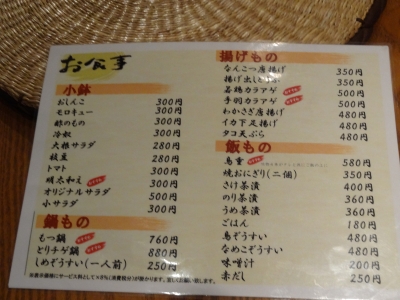 お食事
小鉢
おしんこ 300円
モロキュー 300円
酢のもの 300円
冷奴 300円
大根サラダ 280円
枝豆 280円
トマト 300円
明太和え 300円
オリジナルサラダ 500円
小サラダ 300円
鍋もの
もつ鍋 760円
とりチゲ鍋 880円
しめぞうすい(一人前) 250円
揚げもの
なんこつ唐揚げ 350円
揚げ出し 350円
若鶏カラアゲ 500円
手羽カラアゲ 500円
わかさぎ唐揚げ 480円
イカ下足揚げ 480円
タコ天ぷら 480円
飯もの
鳥重 580円
焼おにぎり(二個) 350円
さけ茶漬 400円
のり茶漬 360円
うめ茶漬 360円
ごはん 180円
鳥ぞうすい 480円
なめこぞうすい 480円
味噌汁 200円
赤だし 250円